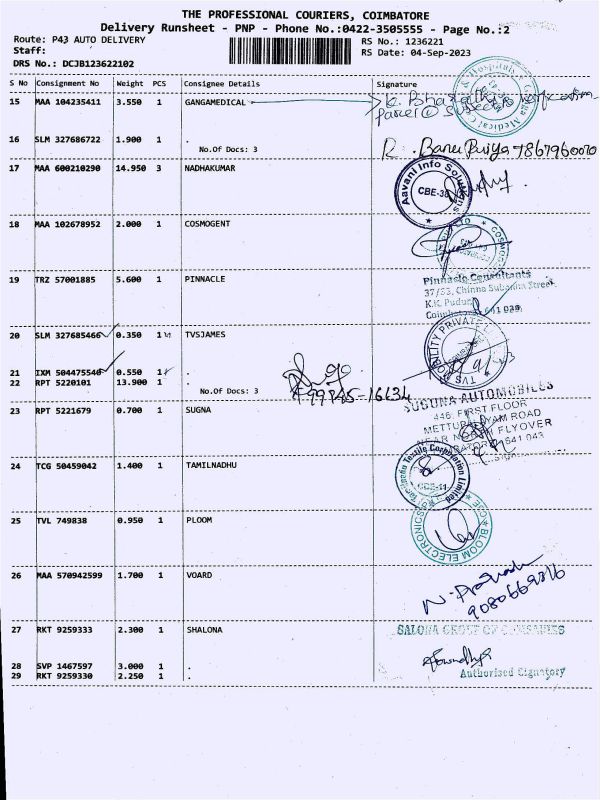 THE PROFESSIONAL COURIERS, COIMBATORE
Delivery Runsheet - PNP - Phone No.:0422-3505555 - Page No.:2
Route: P43 AUTO DELIVERY
RS No.: 1236221
Staff:
RS Date: 04-Sep-2023
DRS No.: DCJB123622102
S No Consignment No Weight PCS Consignee Details Signature
15 MAA 104235411 3.550 1 GANGAMEDICAL
Parcel @
16 SLM 327686722 1.900 1 .
No.Of Docs: 3
R. Banu Puiya 7867960070
17 MAA 600210290 14.950 3 NADHAKUMAR
Aavani Info Solutions
CBE-38
18 MAA 102678952 2.000 1 COSMOGENT
19 TRZ 57001885 5.600 1 PINNACLE
Pinnacle Consultants
37/33, Chinna Subanna Street,
K.K. Pudur,
Coimbatore 641 038.
20 SLM 327685466 0.350 1 TVSJAMES
TVS MOBILITY PRIVATE
21 IXM 504475540 0.550 1 .
22 RPT 5220101 13.900 1 .
No.Of Docs: 3
99845-16634
23 RPT 5221679 0.700 1 SUGNA
SUGUNA AUTOMOBILES
446, FIRST FLOOR
METTUPALAYAM ROAD
FLYOVER
641 043
24 TCG 50459042 1.400 1 TAMILNADHU
Textile Corporation Limited
25 TVL 749838 0.950 1 PLOOM
BLOOM ELECTRONICS
CBE
26 MAA 570942599 1.700 1 VOARD
9080669376
27 RKT 9259333 2.300 1 SHALONA
SALONA GROUP OF COMPANIES
28 SVP 1467597 3.000 1 .
29 RKT 9259330 2.250 1 .
Authorised Signatory